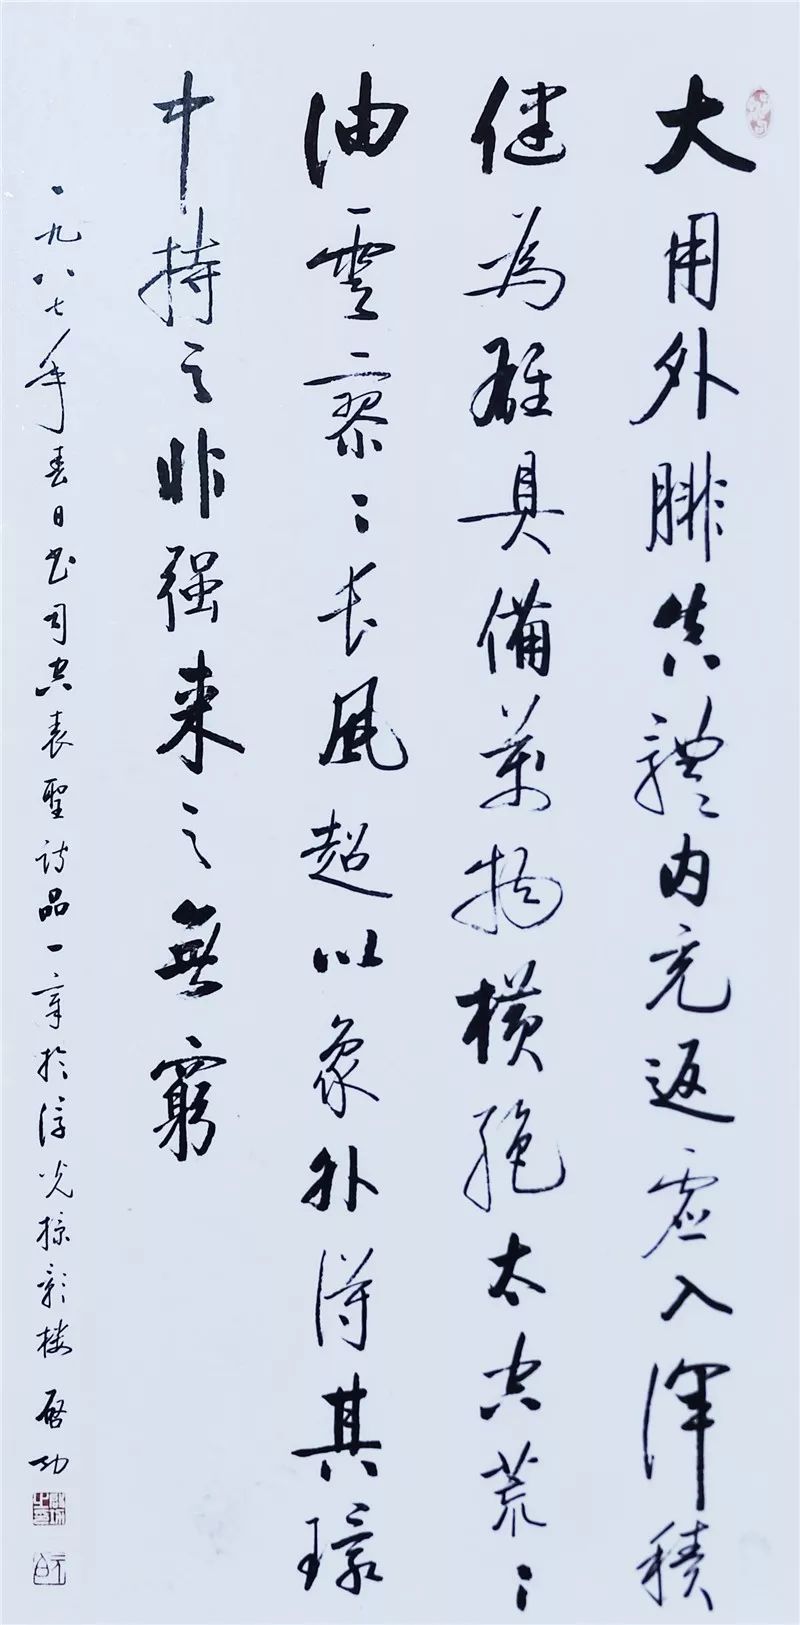 大用外腓真體内充返虛入渾積
健為雄具備萬物横絕太空荒〻
油雲寥〻長風超以象外得其環
中持之非强来之無窮
一九八七年春日书司空表聖詩品一章於浮光掠影樓 启功
元白